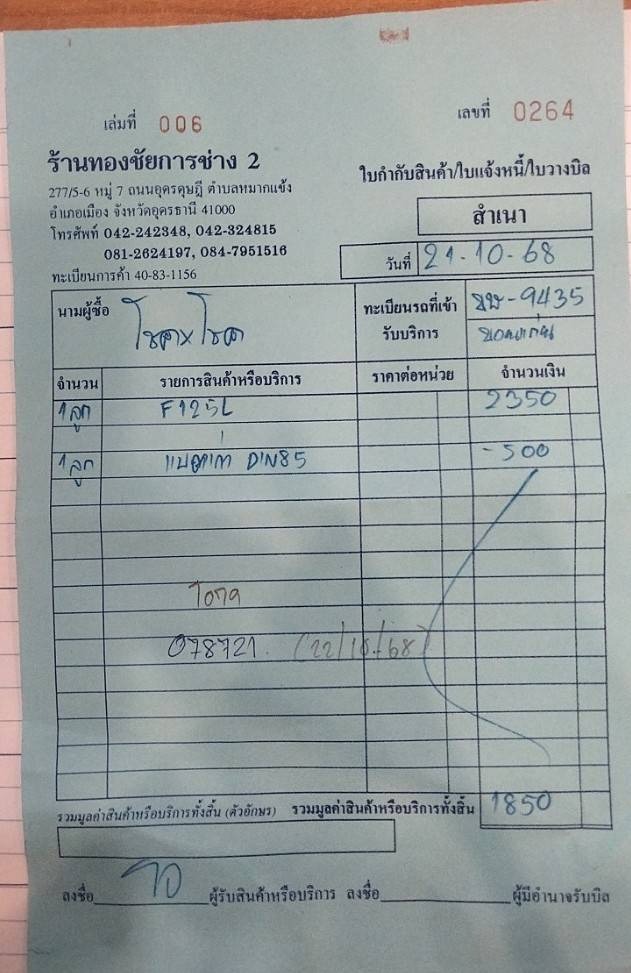 เล่มที่ 006
เลขที่ 0264
ร้านทองชัยการช่าง 2
277/5-6 หมู่ 7 ถนนอุดรดุษฎี ตำบลหมากแข้ง
อำเภอเมือง จังหวัดอุดรธานี 41000
โทรศัพท์ 042-242348, 042-324815
081-2624197, 084-7951516
ทะเบียนการค้า 40-83-1156
ใบกำกับสินค้า/ใบแจ้งหนี้/ใบวางบิล
สำเนา
วันที่ 21-10-68
นามผู้ซื้อ
ทะเบียนรถที่เข้ารับบริการ -9435
ขอนแก่น
จำนวน รายการสินค้าหรือบริการ ราคาต่อหน่วย จำนวนเงิน
1ลูก F125L 2350
1ลูก แบตเก่า DIN85 -500
078721. (22/10/68)
รวมมูลค่าสินค้าหรือบริการทั้งสิ้น (ตัวอักษร) รวมมูลค่าสินค้าหรือบริการทั้งสิ้น 1850
ลงชื่อ ผู้รับสินค้าหรือบริการ ลงชื่อ ผู้มีอำนาจรับบิล